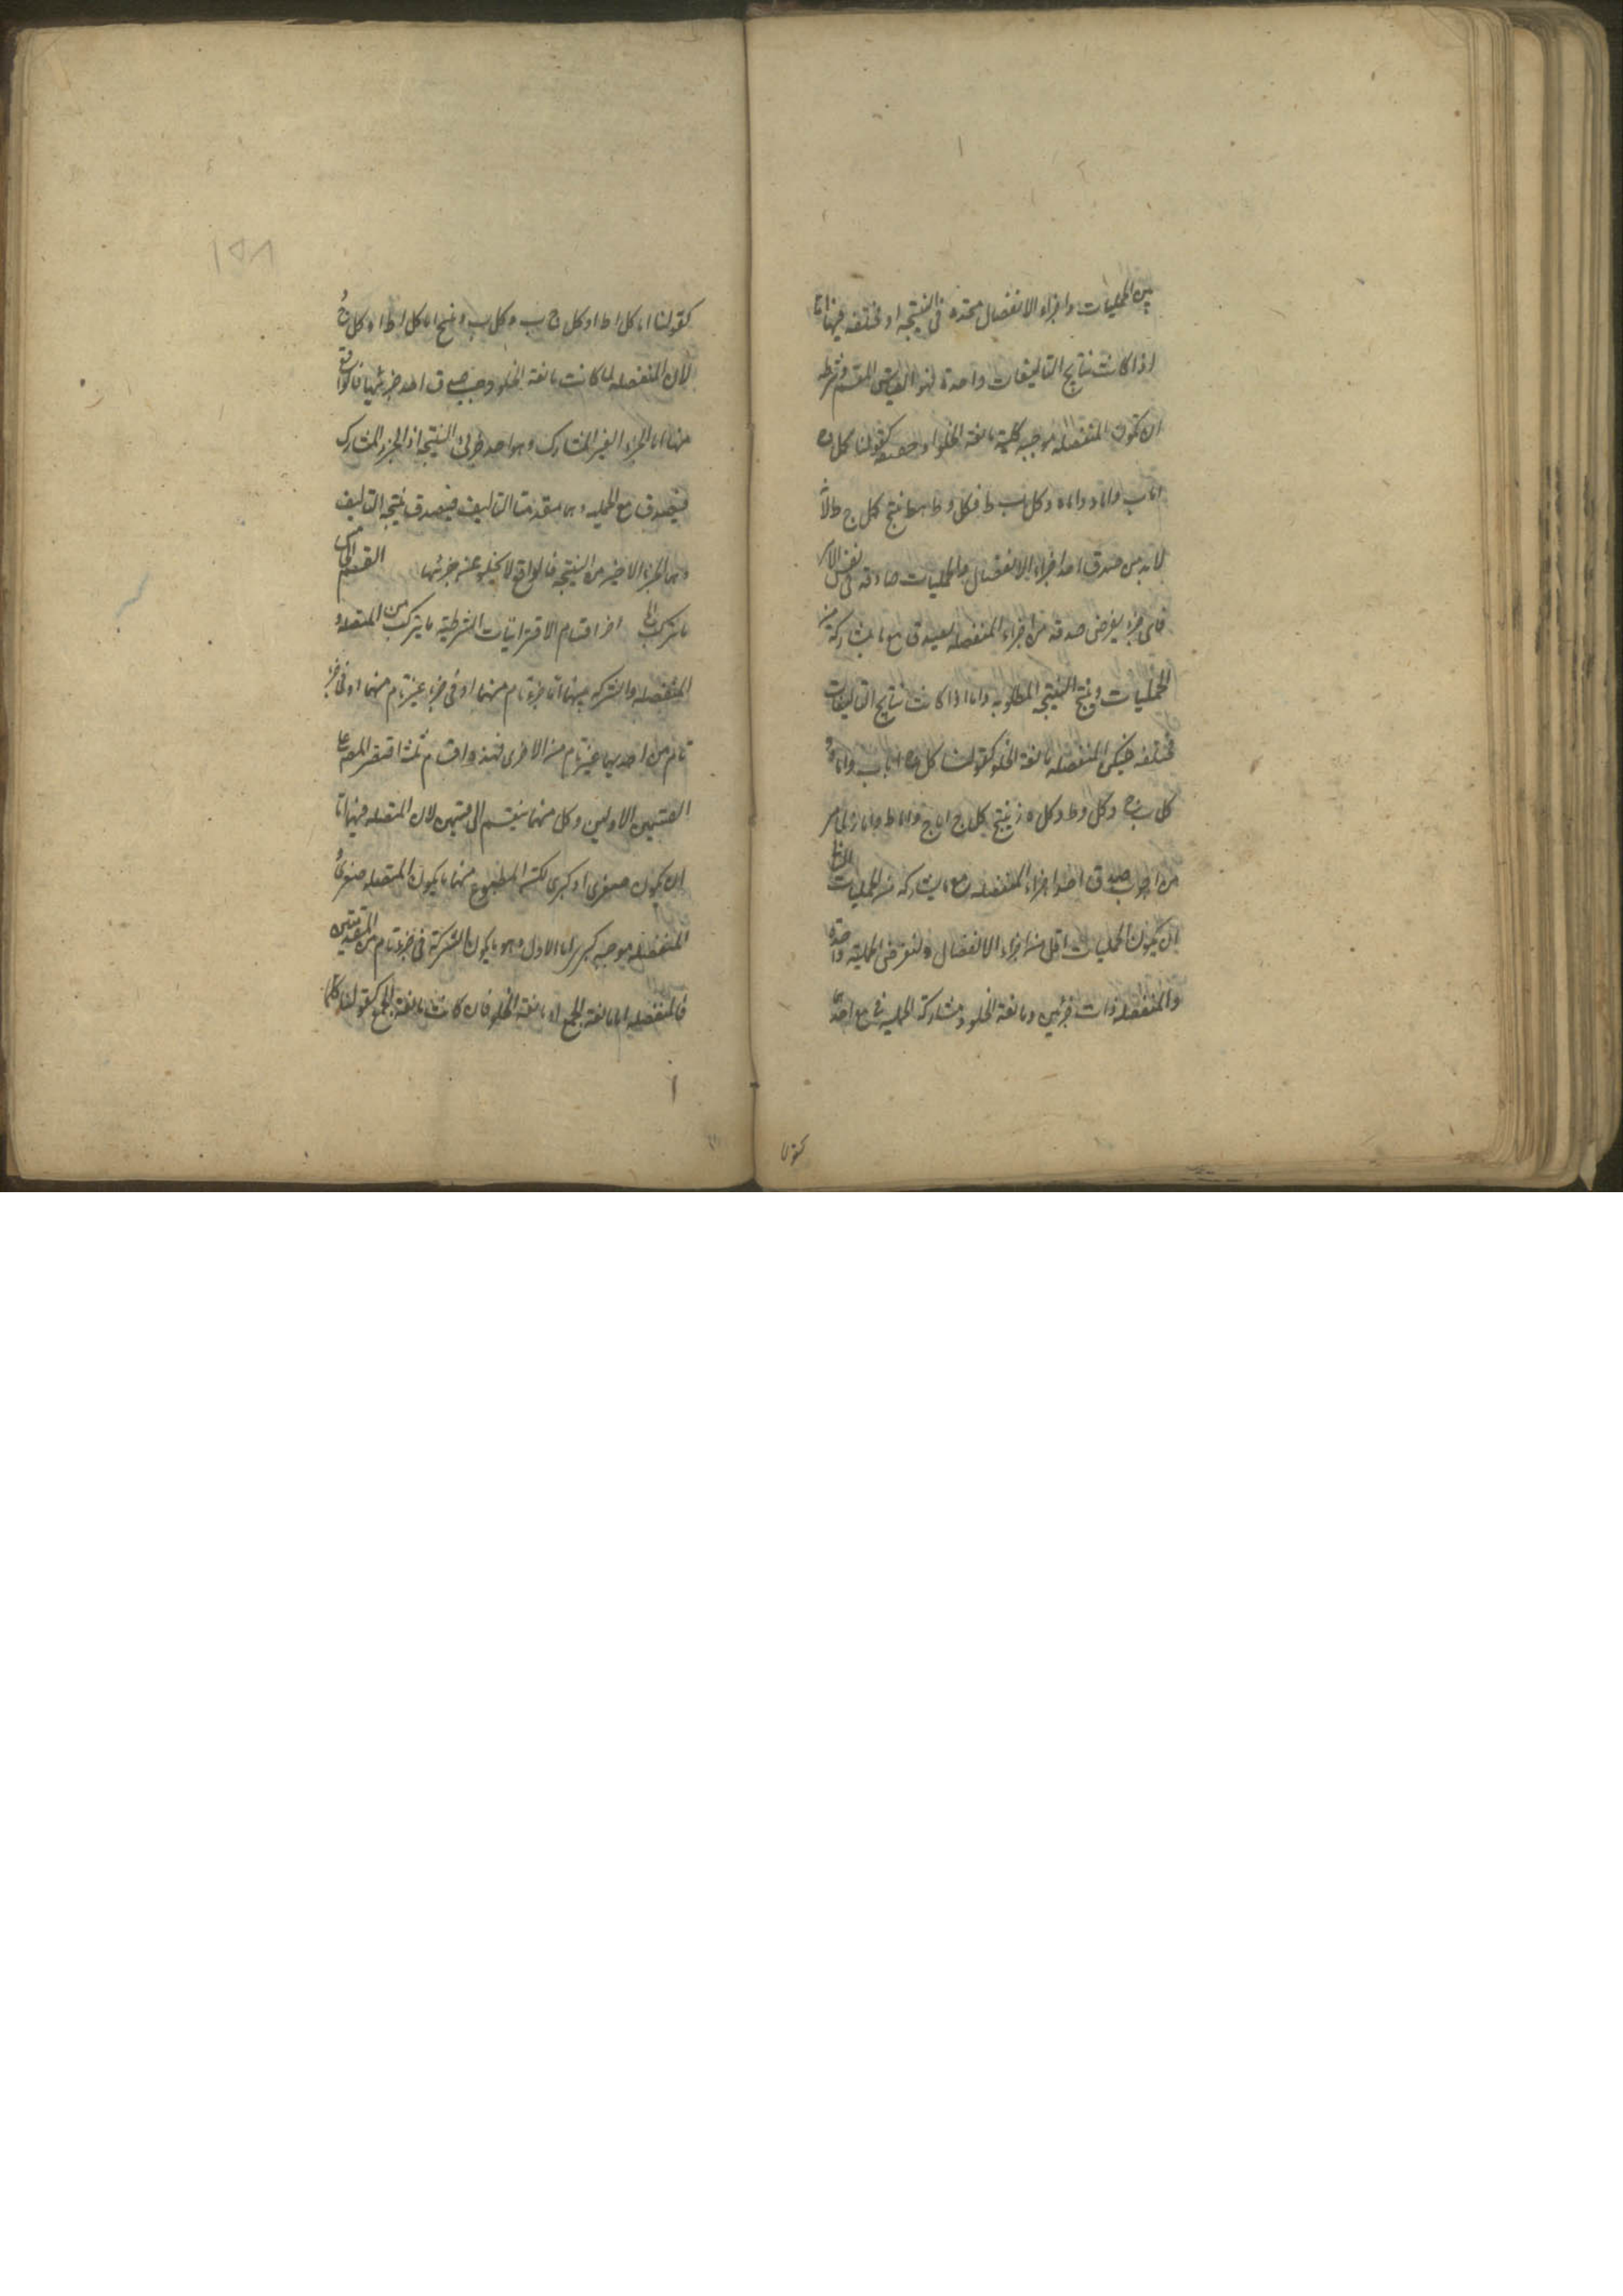 بين الحمليات واجزاء الانفصال متحدة فى النتيجة او مختلفة فيها اما
اذا كانت نتايج التاليفات واحدة فهو القياس المقسم وشرطه
ان تكون المنفصلة موجبة كلية مانعة الخلو او حقيقية كقولنا كل ج
اما ب واما د واما ه وكل ب ط وكل د ط وكل ه ط ينتج كل ج ط لانه
لابد من صدق احد اجزاء الانفصال والحمليات صادقة فى نفس الامر
فاى جزء يفرض صدقه من اجزاء المنفصلة يصدق مع ما يشاركه من
الحمليات وينتج النتيجة المطلوبة واما اذا كانت نتايج التاليفات
مختلفة فليكن المنفصلة مانعة الخلو كقولنا كل ج اما ب واما د
كل ب ج وكل د ط وكل ه ز ينتج كل ج اما ج واما ط واما ز لما مر
من وجوب صدق احد اجزاء المنفصلة مع ما يشاركه من الحمليات الثالث
ان يكون الحمليات اقل من اجزاء الانفصال ولنفرض الحملية واحدة
والمنفصلة ذات جزئين ومانعة الخلو ومشاركة الحملية مع احدهما
كقولنا
١٥٨
كقولنا اما كل ا ط او كل ج ب وكل ب د ينتج اما كل ا ط او كل ج د
لان المنفصلة لما كانت مانعة الخلو وجب صدق احد جزئيها فالواقع
منها اما الجزء الغير المشارك وهو احد جزئى النتيجة او الجزء المشارك
فيصدق مع الحملية وهما مقدمتا التاليف فيصدق نتيجة التاليف
وهى الجزء الاخير من النتيجة فالواقع لا يخلو عن جزئيها القسم الخامس
ما تركب اخر اقسام الاقترانيات الشرطية ما يتركب من المتصلة و
المنفصلة والشركة بينهما اما فى جزء تام منهما او فى جزء غير تام منهما او فى جزء
تام من احديهما غير تام من الاخرى فهذه اقسام ثلثة اقتصر المصنف على
القسمين الاولين وكل منهما ينقسم الى قسمين لان المتصلة فيهما اما
ان يكون صغرى او كبرى لكنه المطبوع منهما ما يكون المتصلة صغرى و
المنفصلة موجبة كبرى اما الاول وهو ما يكون الشركة فى جزء تام من المقدمتين
فالمنفصلة اما مانعة الجمع او مانعة الخلو فان كانت مانعة الجمع كقولنا كلما